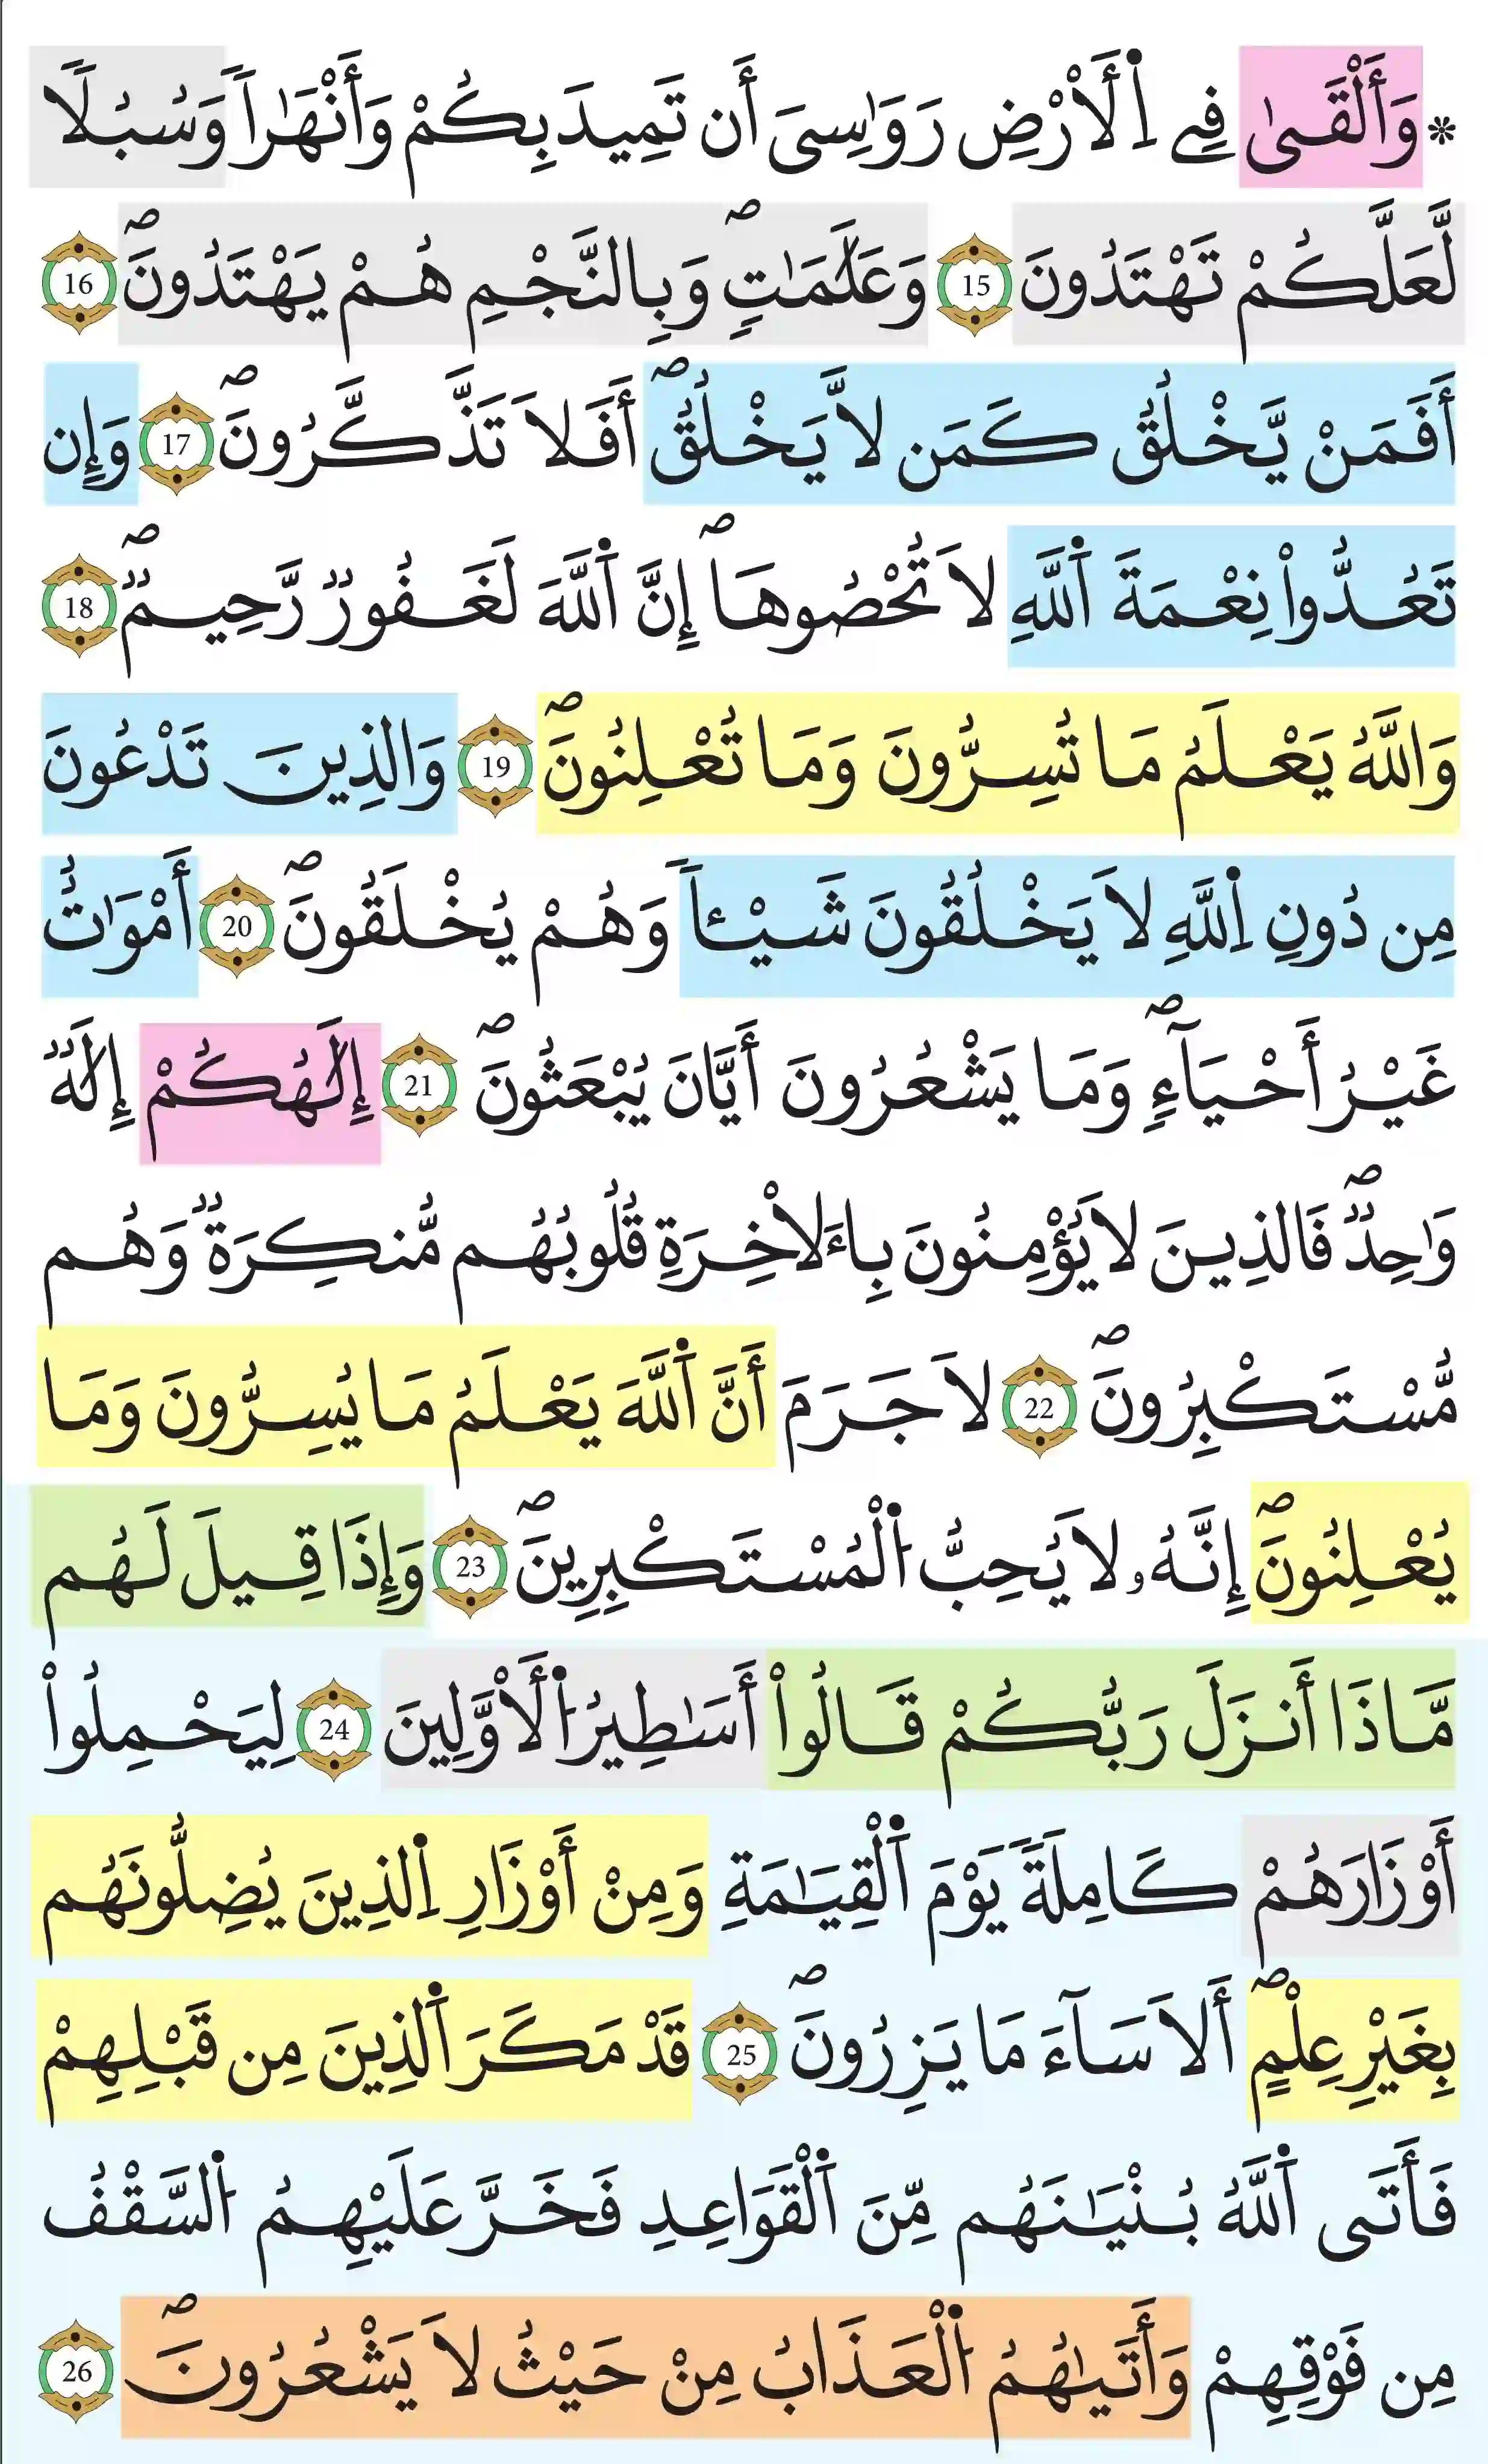 * وَأَلْقَىٰ فِے اِ۬لَارْضِ رَوَٰسِىَ أَن تَمِيدَ بِكُمْ وَأَنْهَٰراٗ وَسُبُلٗا
لَّعَلَّكُمْ تَهْتَدُونَ 15 وَعَلَٰمَٰتٍۖ وَبِالنَّجْمِ هُمْ يَهْتَدُونَۖ 16
أَفَمَنْ يَّخْلُقُ كَمَن لَّا يَخْلُقُۖ أَفَلَا تَذَّكَّرُونَۖ 17 وَإِن
تَعُدُّواْ نِعْمَةَ اَ۬للَّهِ لَا تُحْصُوهَاۖ إِنَّ اَ۬للَّهَ لَغَفُورٞ رَّحِيمٞۖ 18
وَاللَّهُ يَعْلَمُ مَا تُسِرُّونَ وَمَا تُعْلِنُونَۖ 19 وَالذِينَ تَدْعُونَ
مِن دُونِ اِ۬للَّهِ لَا يَخْلُقُونَ شَيْـٔاٗ وَهُمْ يُخْلَقُونَۖ 20 أَمْوَٰتٌ
غَيْرُ أَحْيَآءٖۖ وَمَا يَشْعُرُونَ أَيَّانَ يُبْعَثُونَۖ 21 إِلَٰهُكُمْ إِلَٰهٞ
وَٰحِدٞۖ فَالذِينَ لَا يُؤْمِنُونَ بِاءَلَاخِرَةِ قُلُوبُهُم مُّنكِرَةٞ وَهُم
مُّسْتَكْبِرُونَۖ 22 لَا جَرَمَ أَنَّ اَ۬للَّهَ يَعْلَمُ مَا يُسِرُّونَ وَمَا
يُعْلِنُونَۖ إِنَّهُۥ لَا يُحِبُّ اُ۬لْمُسْتَكْبِرِينَۖ 23 وَإِذَا قِيلَ لَهُم
مَّاذَا أَنزَلَ رَبُّكُمْ قَالُواْ أَسَٰطِيرُ اُ۬لَاوَّلِينَ 24 لِيَحْمِلُواْ
أَوْزَارَهُمْ كَامِلَةٗ يَوْمَ اَ۬لْقِيَٰمَةِ وَمِنْ أَوْزَارِ اِ۬لذِينَ يُضِلُّونَهُم
بِغَيْرِ عِلْمٍۖ أَلَا سَآءَ مَا يَزِرُونَۖ 25 قَدْ مَكَرَ اَ۬لذِينَ مِن قَبْلِهِمْ
فَأَتَى اَ۬للَّهُ بُنْيَٰنَهُم مِّنَ اَ۬لْقَوَاعِدِ فَخَرَّ عَلَيْهِمُ اُ۬لسَّقْفُ
مِن فَوْقِهِمْ وَأَتَىٰهُمُ اُ۬لْعَذَابُ مِنْ حَيْثُ لَا يَشْعُرُونَۖ 26